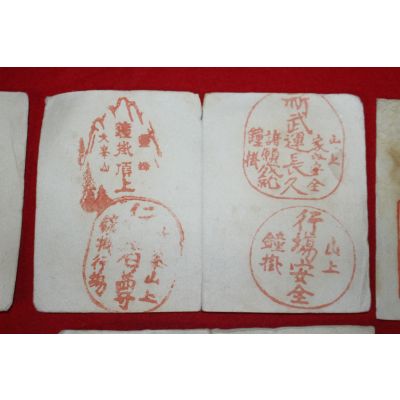 山上
家内安全
祈武運長久
諸願成就
鐘掛
山上
行場安全
鐘掛
鐘掛頂上
大峯山
山上
鐘掛行場